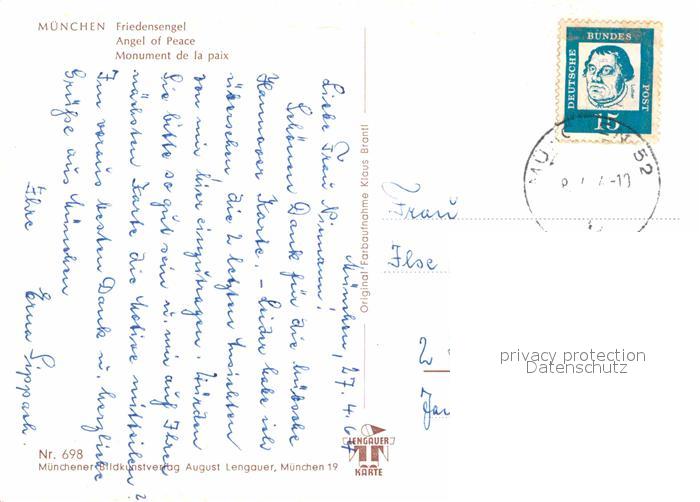 MÜNCHEN Friedensengel
Angel of Peace
Monument de la paix
München, 27.4.67
Liebe Frau
Schönen Dank für die hübsche
Hannover Karte. - Leider habe ich
die 2 letzten Ansichten
von mir hier eingetragen. Würden
Sie bitte so gut sein u. mir auf Ihrer
nächsten Karte die Motive mitteilen?
Im voraus besten Dank u. herzliche
Grüße aus München
Ihre
Erna
Original Farbaufnahme Klaus Brantl
DEUTSCHE BUNDES POST
Luther
15
52
-19
Frau
Ilse
2
privacy protection
Datenschutz
Nr. 698
Münchener Bildkunstverlag August Lengauer, München 19
LENGAUER
KARTE